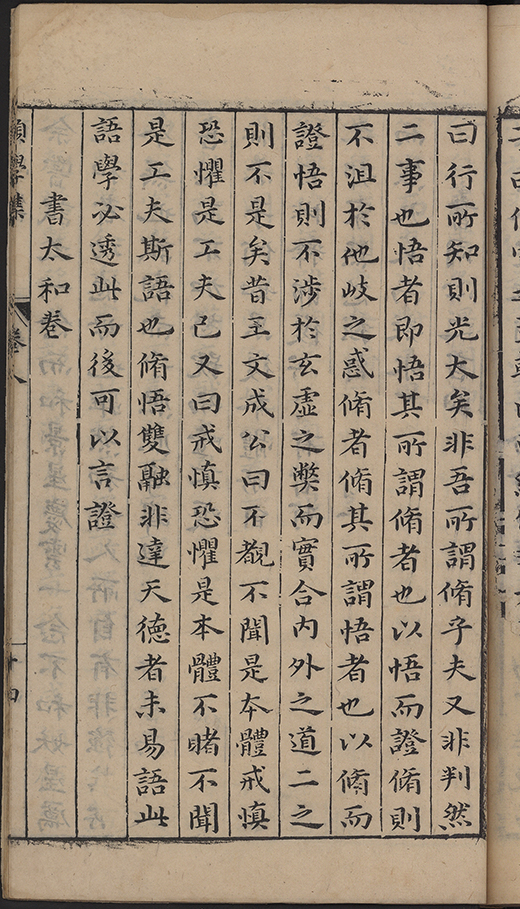 曰行所知則光大矣非吾所謂脩乎夫又非判然
二事也悟者即悟其所謂脩者也以悟而證脩則
不沮於他岐之惑脩者脩其所謂悟者也以脩而
證悟則不涉於玄虛之弊而實合內外之道二之
則不是矣昔王文成公曰不覩不聞是本體戒慎
恐懼是工夫已又曰戒慎恐懼是本體不睹不聞
是工夫斯語也脩悟雙融非達天德者未易語此
語學必透此而後可以言證
書太和卷
願學集
卷八
十四